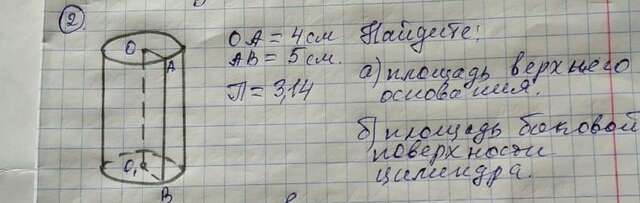 2
O
A
O₁
B
OA = 4 см
AB = 5 см.
П = 3,14
Найдите:
а) площадь верхнего
основания.
б) площадь боковой
поверхности
цилиндра.